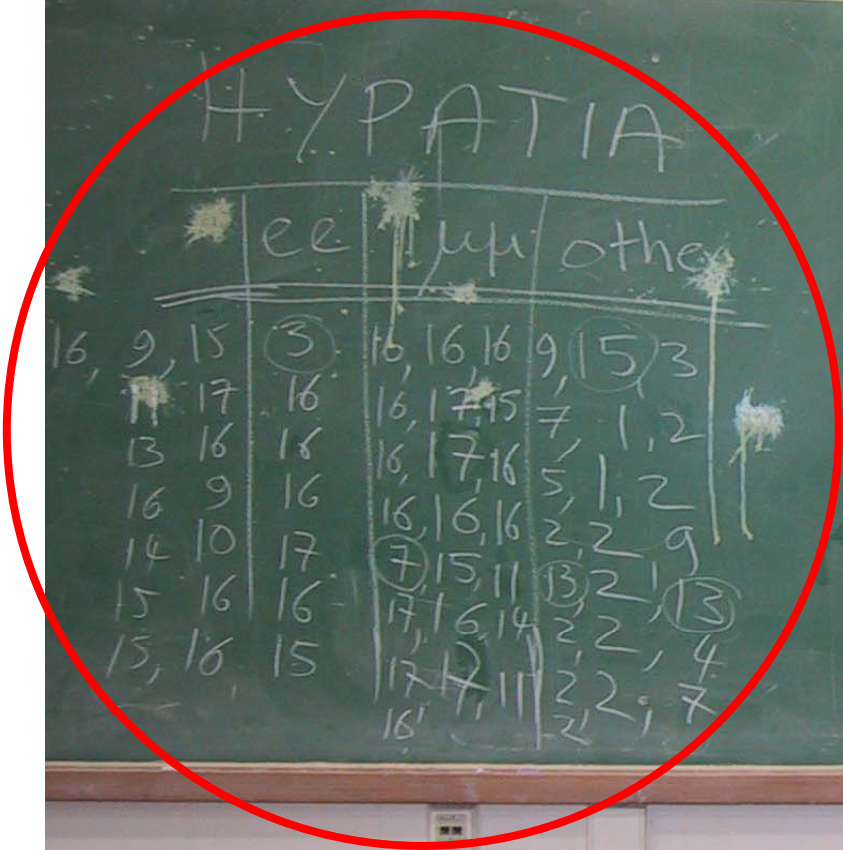 HYPATIA
ee μμ other
16, 9, 15 3 16, 16, 16 9, 15, 3
11 17 16 16, 17, 15 7, 1, 2
13 16 16 16, 17, 16 5, 1, 2
16 9 16 16, 16, 16 2, 2, 9
14 10 17 7, 15, 11 13, 2, 13
15 16 16 17, 16, 14 2, 2, 4
15, 16 15 17, 17, 11 2, 2, 7
16, 2